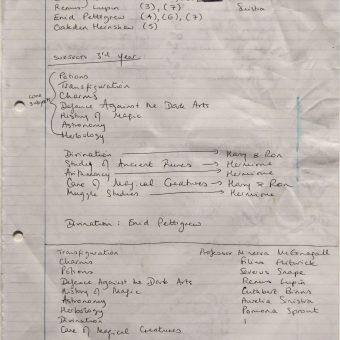 Remus Lupin (3), (7) Sinistra
Enid Pettigrew (4), (6), (7)
Oakden Hernshaw (5)
SUBJECTS 3rd Year
Core Subjects
Potions
Transfiguration
Charms
Defence Against the Dark Arts
History of Magic
Astronomy
Herbology
Divination Harry & Ron
Study of Ancient Runes Hermione
Arithmancy Hermione
Care of Magical Creatures Harry & Ron
Muggle Studies Hermione
Divination: Enid Pettigrew
Transfiguration Professor Minerva McGonagall
Charms Filius Flitwick
Potions Severus Snape
Defence Against the Dark Arts Remus Lupin
History of Magic Cuthbert Binns
Astronomy Aurelia Sinistra
Herbology Pomona Sprout
Divination
Care of Magical Creatures